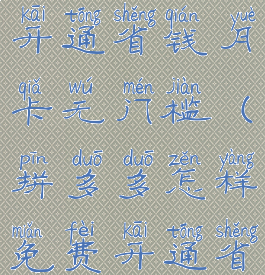 kāi tōng shěng qián yuè
开通省钱月
qiǎ wú mén jiàn
卡无门槛（
pīn duō duō zěn yàng
拼多多怎样
miǎn fèi kāi tōng shěng
免费开通省